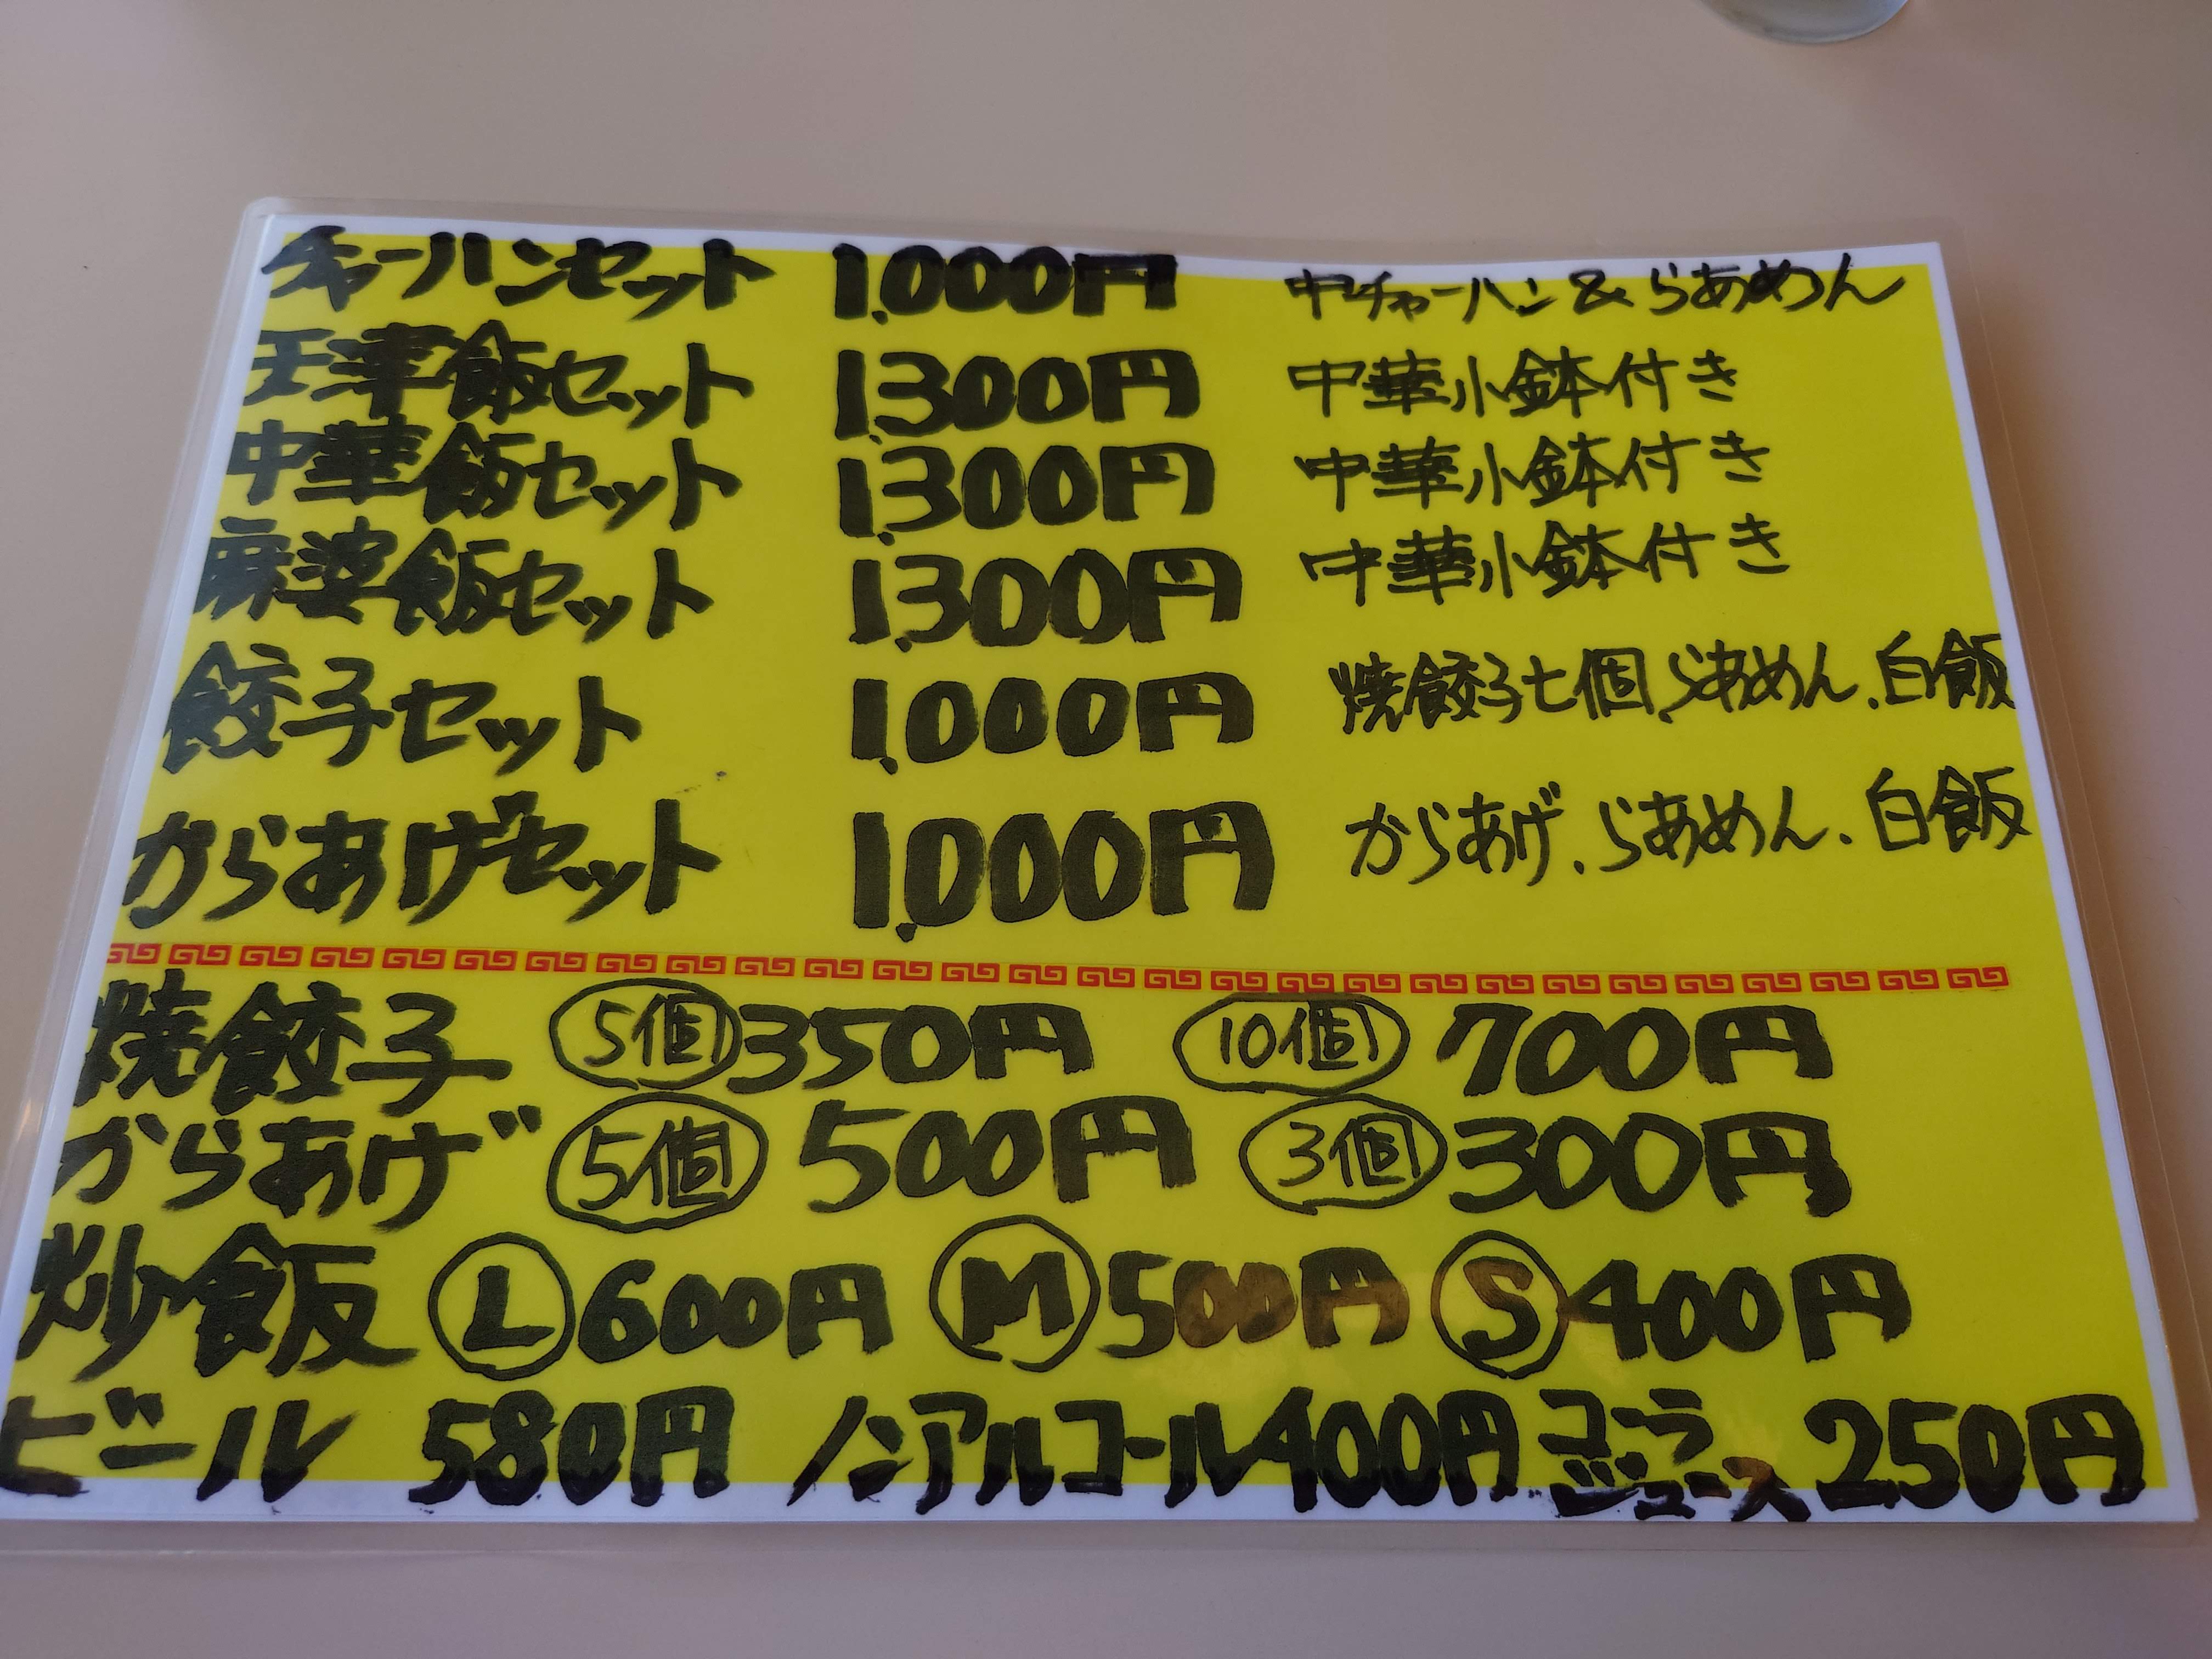 チャーハンセット 1,000円 中チャーハン&らあめん
天津飯セット 1,300円 中華小鉢付き
中華飯セット 1,300円 中華小鉢付き
麻婆飯セット 1,300円 中華小鉢付き
餃子セット 1,000円 焼餃子七個、らあめん、白飯
からあげセット 1,000円 からあげ、らあめん、白飯
焼餃子 5個 350円 10個 700円
からあげ 5個 500円 3個 300円
炒飯 L 600円 M 500円 S 400円
ビール 580円 ノンアルコール 400円 コーラ ジュース 250円